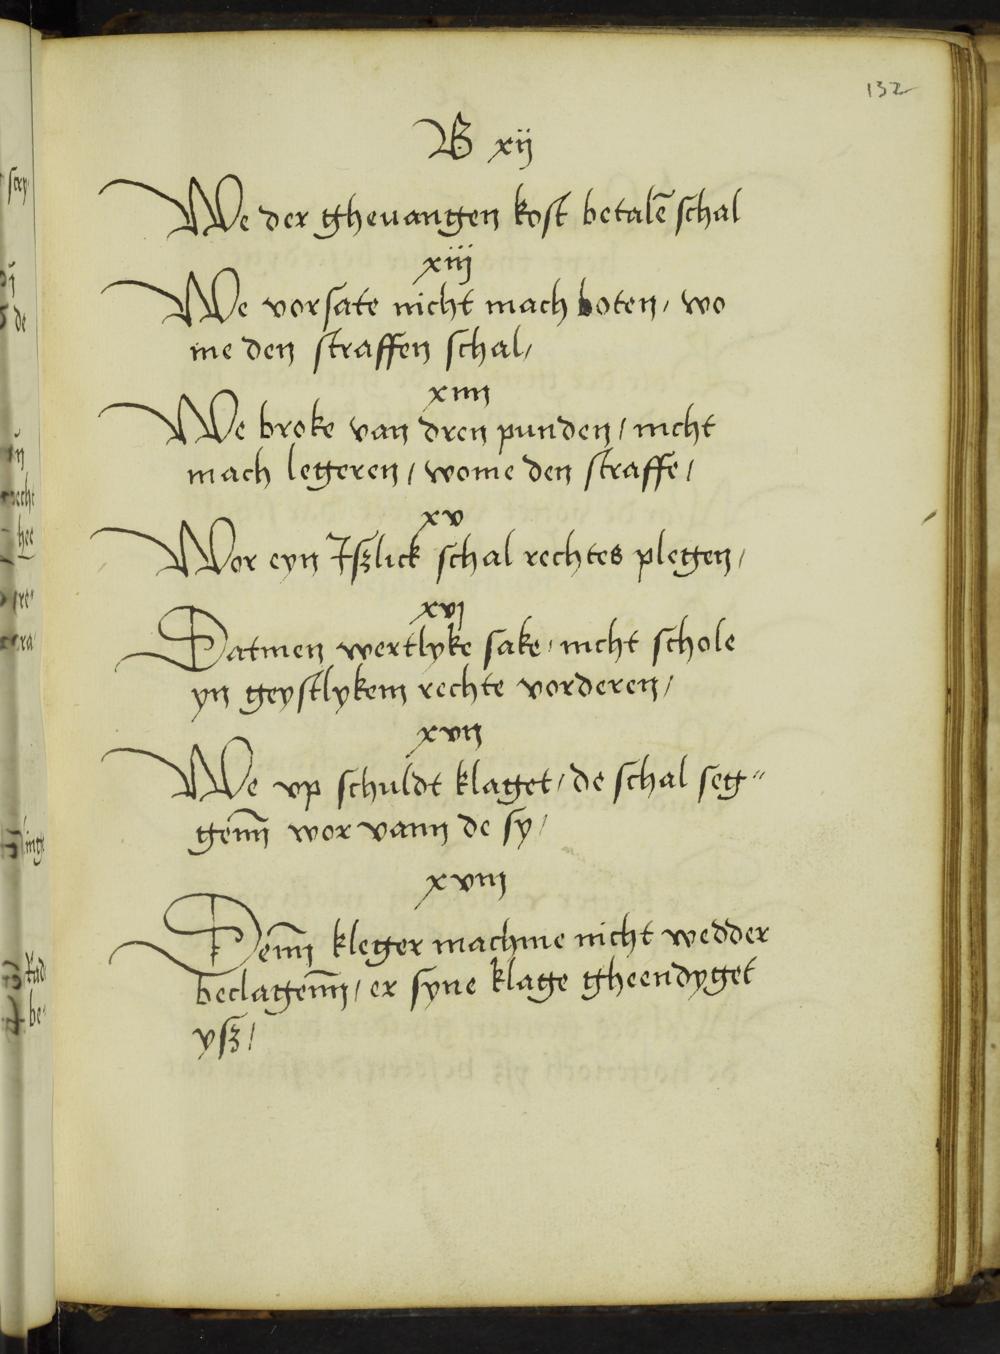 132
B xij
We der gheuangen kost betalē schal
xiij
We vorsate nicht mach boten / wo
me den straffen schal /
xiiij
We broke van dren punden / nicht
mach legeren / wome den straffe /
xv
Wor eyn Iſzlick schal rechtes plegen /
xvj
Datmen wertlyke sake / nicht schole
yn geystlykem rechte vorderen /
xvij
We vp schuldt klaget / de schal seg=
genn̄ wor vann de sy /
xviij
Denn̄ kleger machme nicht wedder
beclagenn̄ / er syne klage gheendyget
yſz /